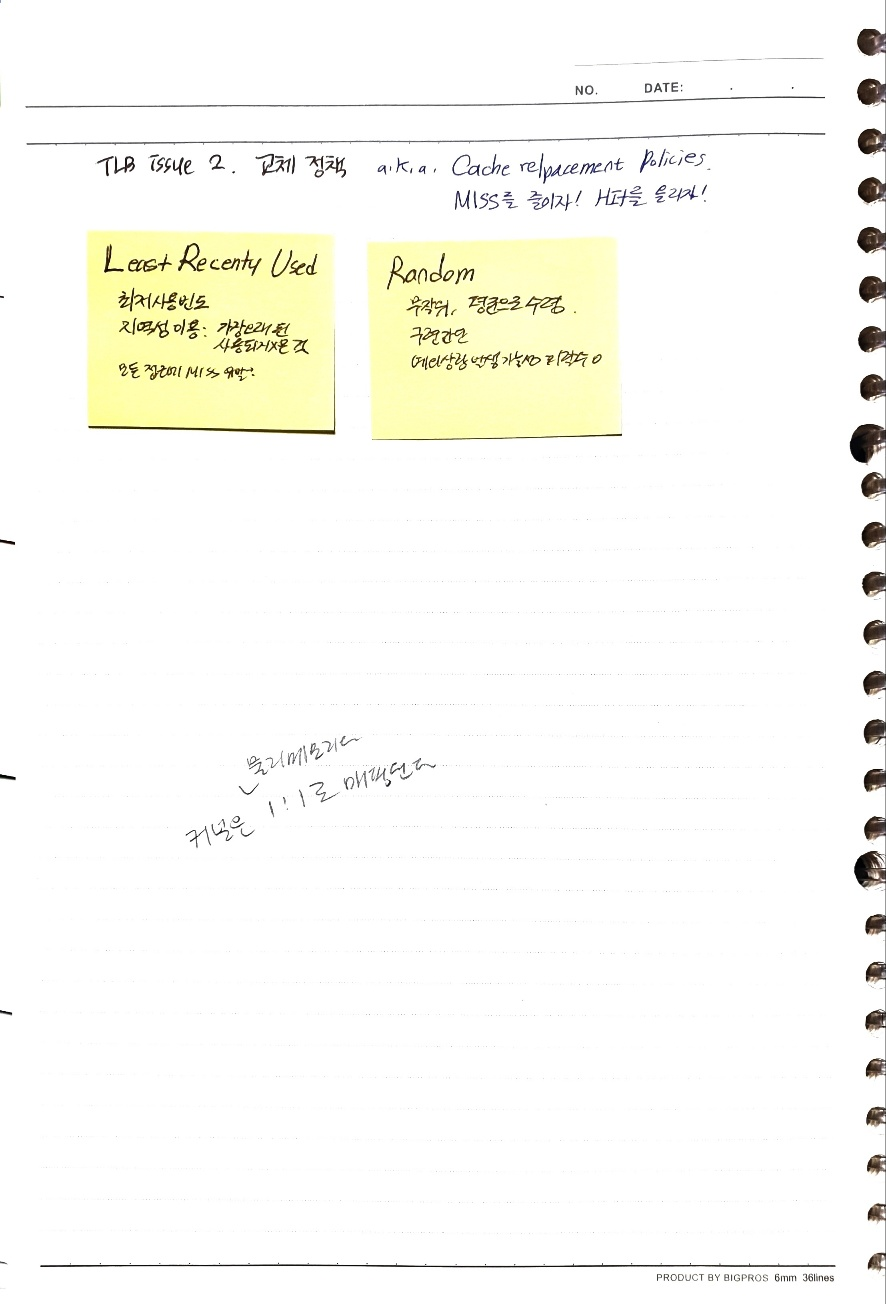 NO. DATE: . .
TLB issue 2. 교체 정책 a.k.a. Cache relpacement Policies.
MISS를 줄이자! Hit를 올리자!
Least Recenty Used
최저사용빈도
지역성 이용: 가장오래된
사용되지않은 것
모든 접근이 MISS 유발!
Random
무작위, 평균으로 수렴.
구현간단
예외상황 발생 가능성
물리메모리
커널은 1:1로 매핑된다
PRODUCT BY BIGPROS 6mm 36lines